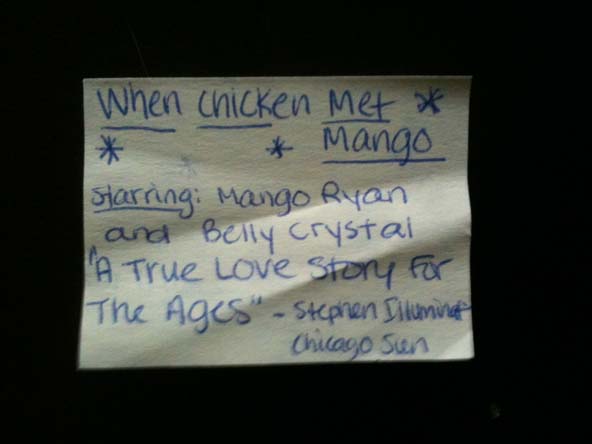 When Chicken Met *
* * Mango
Starring: Mango Ryan
and Belly Crystal
"A True Love Story For
The Ages" - Stephen Illuminat
Chicago Sun